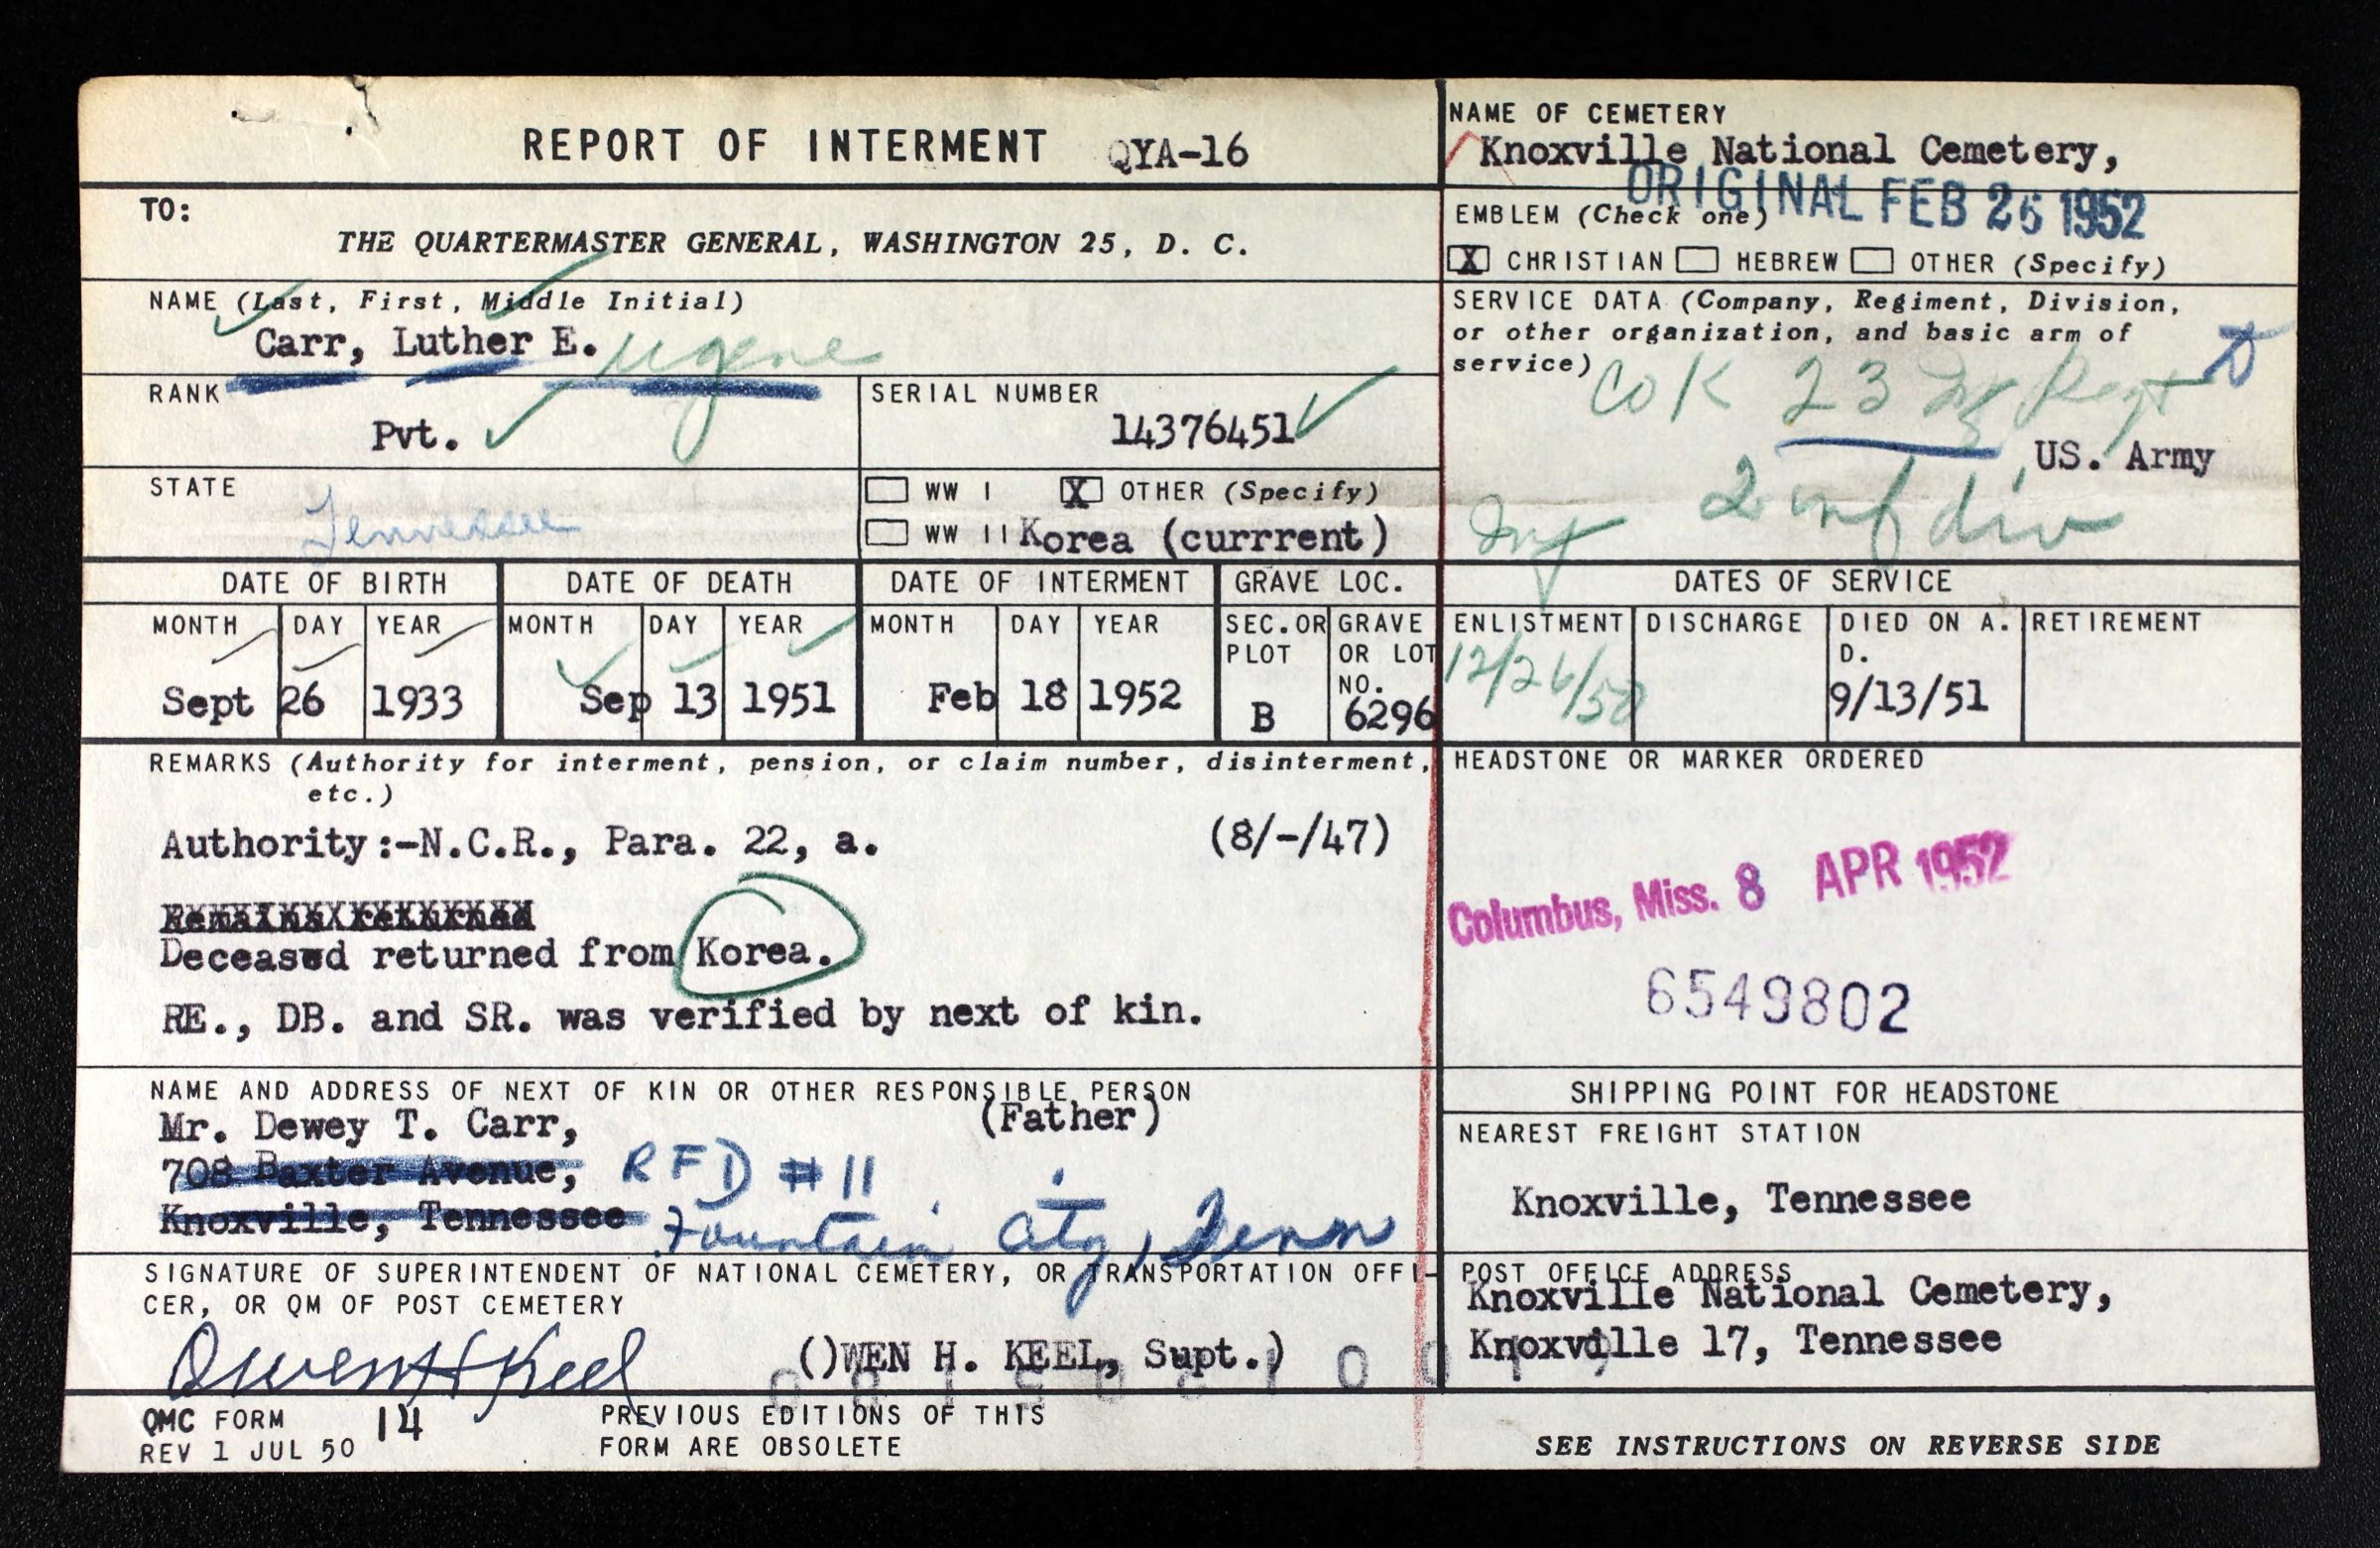 REPORT OF INTERMENT QYA-16
TO:
THE QUARTERMASTER GENERAL, WASHINGTON 25, D. C.
NAME (Last, First, Middle Initial)
Carr, Luther E. ugene
RANK
Pvt.
SERIAL NUMBER
14376451
STATE
Tennessee
WW I X OTHER (Specify)
WW II Korea (currrent)
NAME OF CEMETERY
Knoxville National Cemetery,
ORIGINAL FEB 26 1952
EMBLEM (Check one)
X CHRISTIAN HEBREW OTHER (Specify)
SERVICE DATA (Company, Regiment, Division,
or other organization, and basic arm of
service)
Co K 23 Inf Regt
US. Army
Inf 2 inf div
DATE OF BIRTH DATE OF DEATH DATE OF INTERMENT GRAVE LOC.
MONTH DAY YEAR MONTH DAY YEAR MONTH DAY YEAR SEC. OR PLOT GRAVE OR LOT NO.
Sept 26 1933 Sep 13 1951 Feb 18 1952 B 6296
DATES OF SERVICE
ENLISTMENT DISCHARGE DIED ON A. D. RETIREMENT
12/26/50 9/13/51
REMARKS (Authority for interment, pension, or claim number, disinterment,
etc.)
Authority:-N.C.R., Para. 22, a. (8/-/47)
Remains returned
Deceased returned from Korea.
RE., DB. and SR. was verified by next of kin.
HEADSTONE OR MARKER ORDERED
Columbus, Miss. 8 APR 1952
6549802
NAME AND ADDRESS OF NEXT OF KIN OR OTHER RESPONSIBLE PERSON
Mr. Dewey T. Carr, (Father)
708 Baxter Avenue, RFD #11
Knoxville, Tennessee Fountain City, Tenn
SHIPPING POINT FOR HEADSTONE
NEAREST FREIGHT STATION
Knoxville, Tennessee
SIGNATURE OF SUPERINTENDENT OF NATIONAL CEMETERY, OR TRANSPORTATION OFFI-
CER, OR QM OF POST CEMETERY
Owen H Keel ()WEN H. KEEL, Supt.)
POST OFFICE ADDRESS
Knoxville National Cemetery,
Knoxville 17, Tennessee
QMC FORM 14
REV 1 JUL 50
PREVIOUS EDITIONS OF THIS
FORM ARE OBSOLETE
SEE INSTRUCTIONS ON REVERSE SIDE